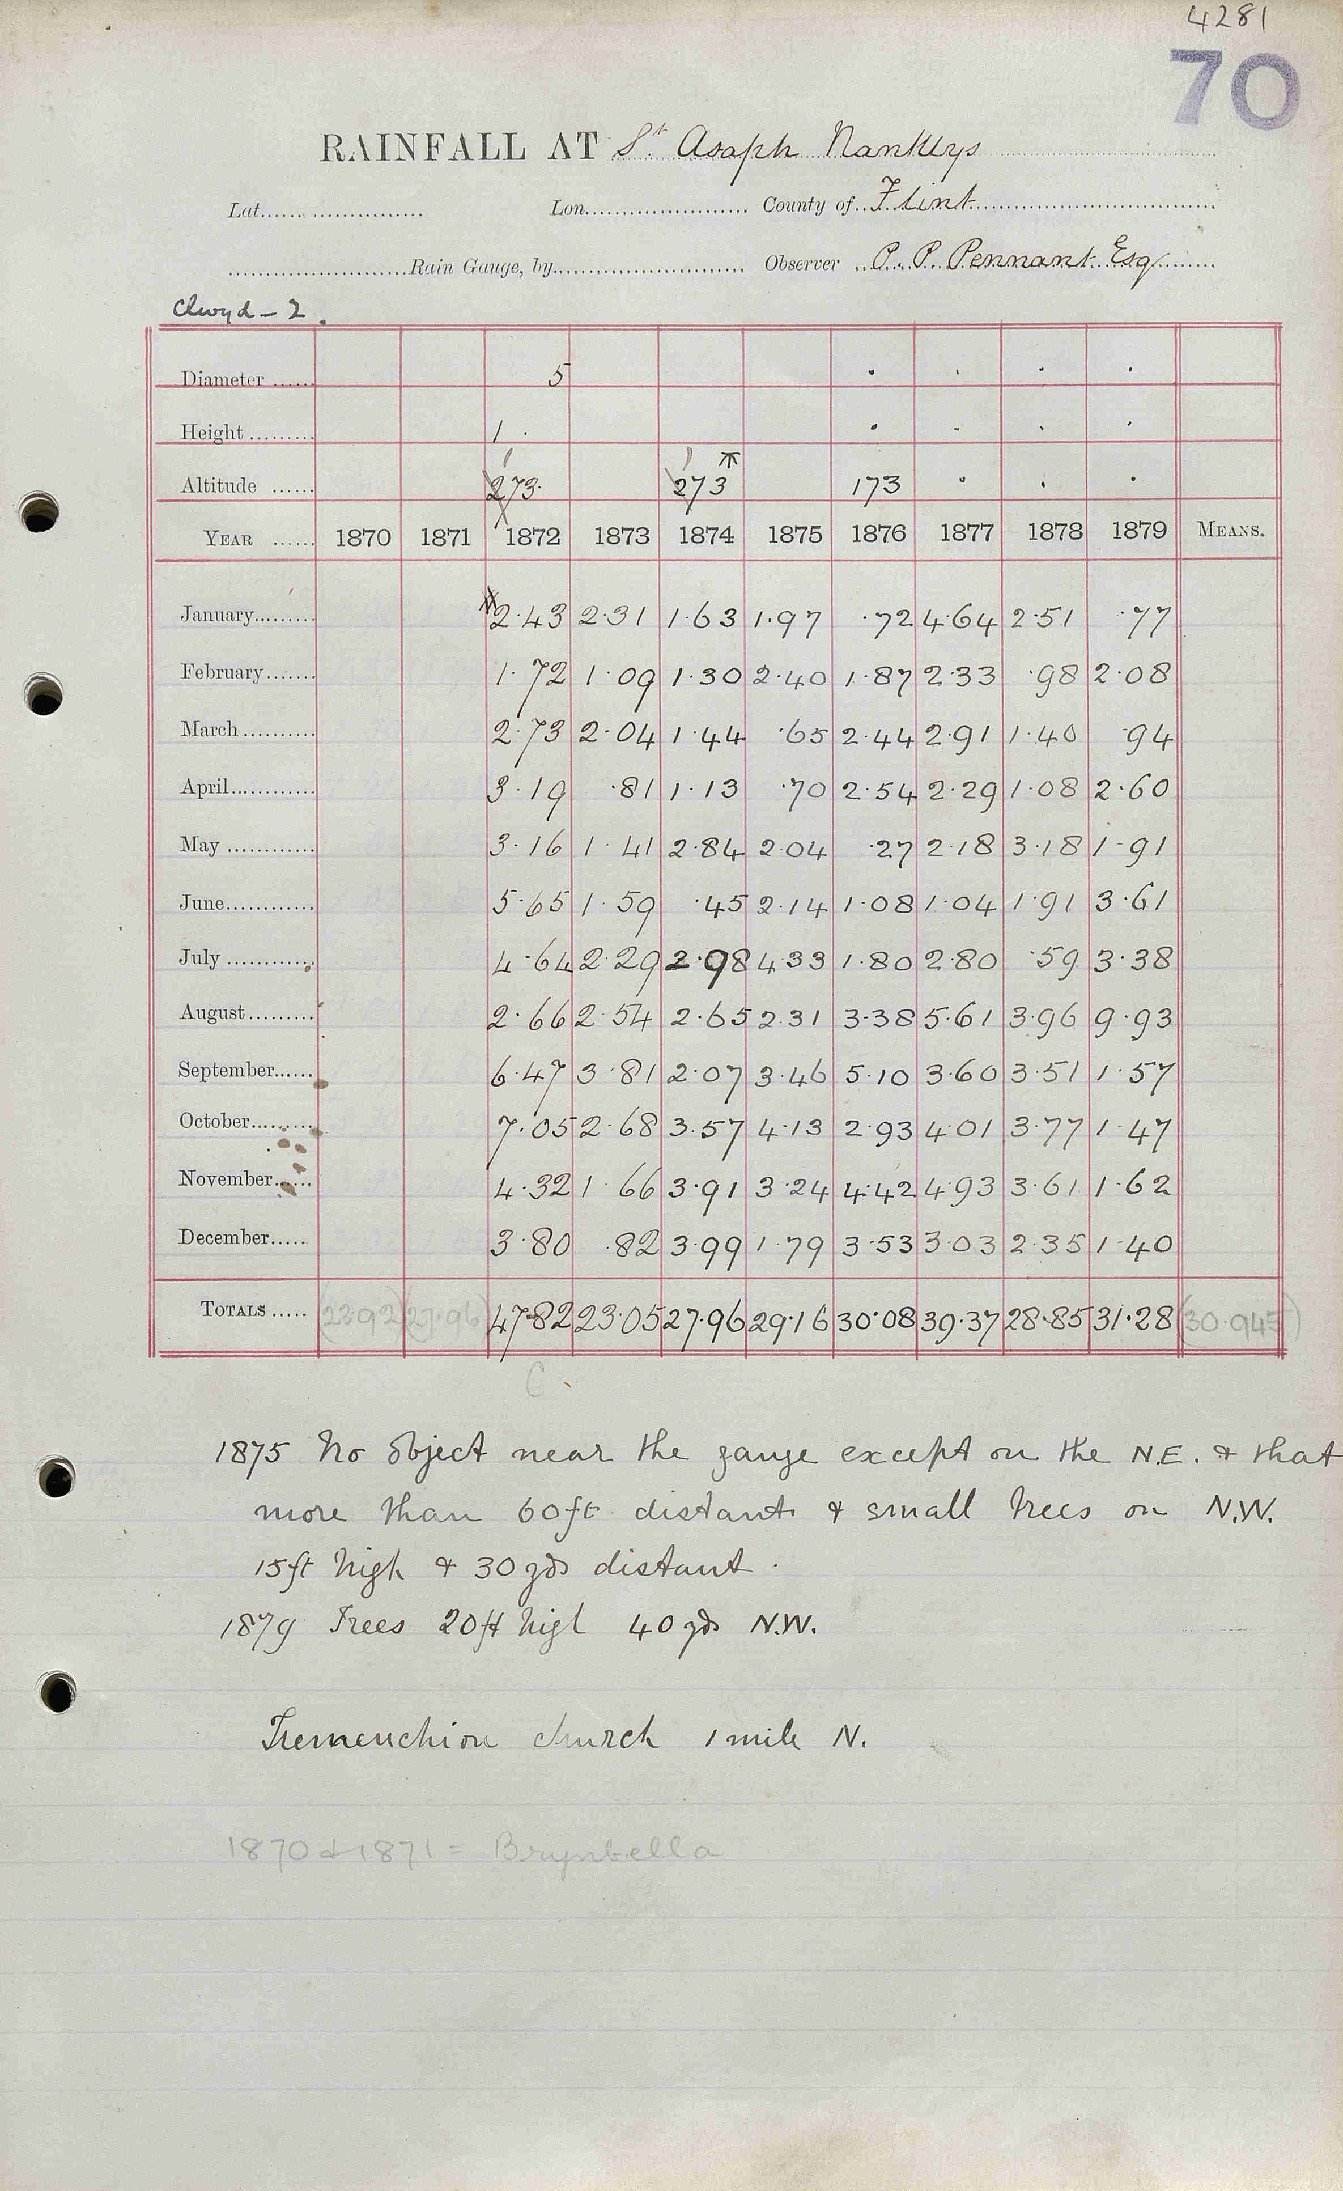 4281
70
RAINFALL AT St. Asaph Nantllys
Lat. Lon. County of Flint
Rain Gauge, by Observer P. P. Pennant Esq
Clwyd – 2.
Diameter 5 · · · ·
Height 1 · · · · ·
Altitude 273 1 273 1 173 · · ·
YEAR 1870 1871 1872 1873 1874 1875 1876 1877 1878 1879 MEANS.
January 2.43 2.31 1.63 1.97 .72 4.64 2.51 .77
February 1.72 1.09 1.30 2.40 1.87 2.33 .98 2.08
March 2.73 2.04 1.44 .65 2.44 2.91 1.40 .94
April 3.19 .81 1.13 .70 2.54 2.29 1.08 2.60
May 3.16 1.41 2.84 2.04 .27 2.18 3.18 1.91
June 5.65 1.59 .45 2.14 1.08 1.04 1.91 3.61
July 4.64 2.29 2.98 4.33 1.80 2.80 .59 3.38
August 2.66 2.54 2.65 2.31 3.38 5.61 3.96 9.93
September 6.47 3.81 2.07 3.46 5.10 3.60 3.51 1.57
October 7.05 2.68 3.57 4.13 2.93 4.01 3.77 1.47
November 4.32 1.66 3.91 3.24 4.42 4.93 3.61 1.62
December 3.80 .82 3.99 1.79 3.53 3.03 2.35 1.40
TOTALS (23.92) (27.96) 47.82 23.05 27.96 29.16 30.08 39.37 28.85 31.28 (30.945)
C
1875 No object near the gauge except on the N.E. & that
more than 60ft distant & small trees on N.W.
15ft high & 30 yds distant.
1879 Trees 20ft high 40 yds N.W.
Tremeirchion church 1 mile N.
1870 & 1871 = Brynbella